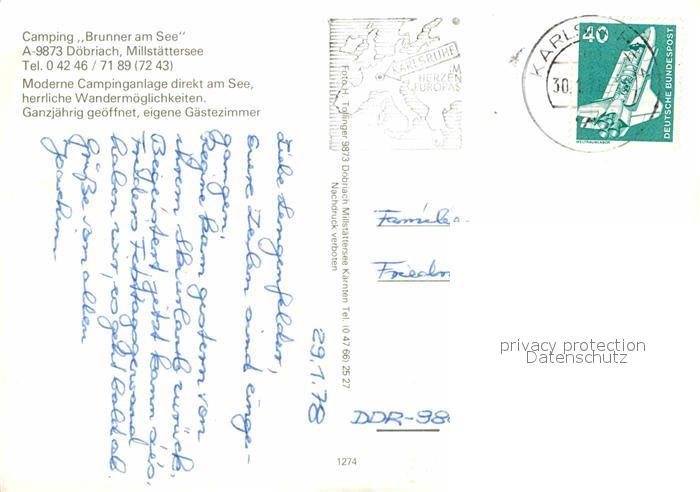 Camping „Brunner am See“
A-9873 Döbriach, Millstättersee
Tel. 0 42 46 / 71 89 (72 43)
Moderne Campinganlage direkt am See,
herrliche Wandermöglichkeiten.
Ganzjährig geöffnet, eigene Gästezimmer
KARLSRUHE
IM
HERZEN
EUROPAS
KARLS
30.1
40
DEUTSCHE BUNDESPOST
WELTRAUMLABOR
Foto H. Tollinger 9873 Döbriach Millstättersee Kärnten Tel. (0 47 66) 25 27
Nachdruck verboten
29.1.78
Liebe Lengenfelder,
Eure Zeilen sind einge-
gangen;
kam gestern von
ihrem Skiurlaub zurück,
Begeistert, jetzt kann
haben wir, so geht bald ab.
Grüße von allen
Joachim
Familie
Friedr
DDR-98
1274
privacy protection
Datenschutz